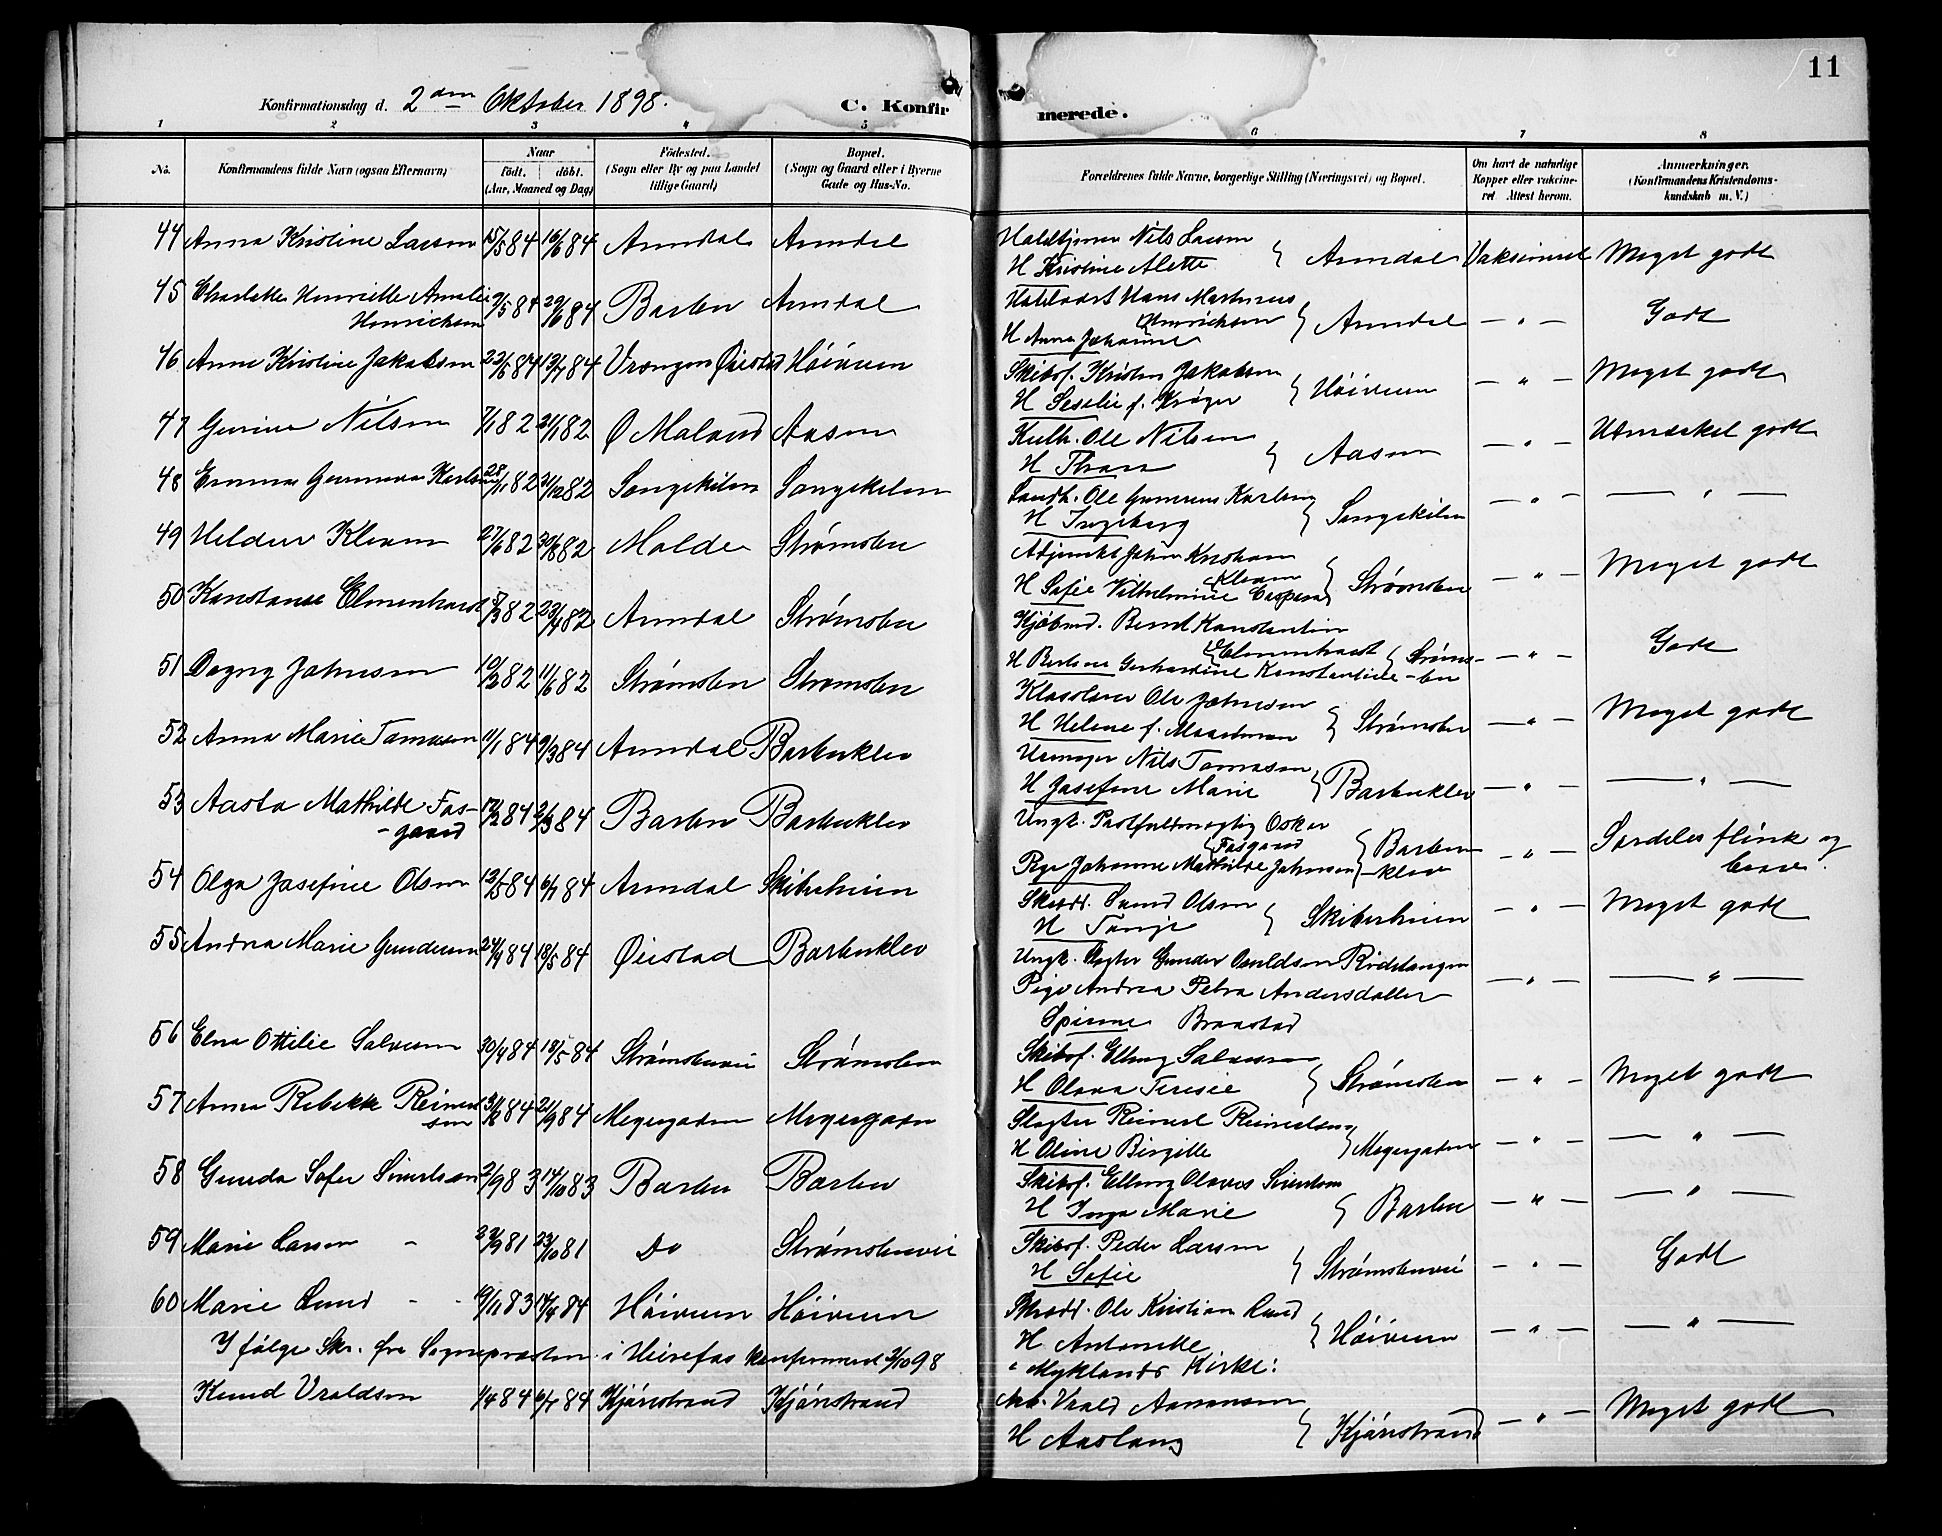 11
Konfirmationsdag d. 2den Oktober 1898.
C. Konfirmerede.
1 2 3 4 5 6 7 8
No.
Konfirmandens fulde Navn (ogsaa Efternavn)
Naar
födt. döbt.
(Aar, Maaned og Dag)
Födested.
(Sogn eller By og paa Landet
tillige Gaard)
Bopæl.
(Sogn og Gaard eller i Byerne
Gade og Hus-No.
Forældrenes fulde Navne, borgerlige Stilling (Næringsvei) og Bopæl.
Om havt de naturlige
Kopper eller vakcine-
ret Attest herom.
Anmærkninger.
(Konfirmandens Kristendoms-
kundskab m. V.)
44 Anna Kristine Larsen 15/5 84 16/6 84 Arendal Arendal
Nils Larsen
H Kristine Alette } Arendal Vaksineret Meget godt
45 Charlotte Henriette Amalie
Henrichsen 9/5 84 29/6 84 Barbu Arendal
Hans Martinius
Henrichsen
H Anna Johanne } Arendal — " — Godt
46 Anne Kristine Jakobsen 22/5 84 13/7 84 Vrængen Øiestad Höiveien
Skibsf. Kristen Jakobsen
H Seselie f. Krøger } Höiveien — " — Meget godt
47 Gurine Nilsen 7/1 82 21/1 82 Ø Moland Aasen
Ole Nilsen
H Thara } Aasen — " — Udmærket godt
48 Emma Gunneva Karlsen 28/11 82 21/12 82 Songekilen Songekilen
Ole Gunerius Karlsen
H Ingeborg } Songekilen — " — — " —
49 Heldur Kleven 27/6 82 30/8 82 Molde Strømsbu
Adjunkt Johan Kristian
Kleven
H Sofie Vilhelmine Caspersen } Strømsbu — " — Meget godt
50 Konstanse Elmenhorst 8/3 82 23/4 82 Arendal Strømsbu
Kjøbmd. Bernt Konstantin
Elmenhorst
H Berline Gerhardine Konstantine } Strøms-
-bu — " — Godt
51 Dagny Johnsen 10/2 82 11/6 82 Strømsbu Strømsbu
Ole Johnsen
H Helene f. } Strømsbu — " — Meget godt
52 Anna Marie Tomasen 11/1 84 9/3 84 Arendal Barbuklev
Urmager Nils Tomasen
H Josefine Marie } Barbuklev — " — — " —
53 Aasta Mathilde Fas-
-gaard 12/2 84 2/3 84 Barbu Barbuklev
Ungk. Postfuldmægtig Oskar
Fasgaard
Pige Johanne Mathilde Johnsen } Barbu-
-klev — " — Særdeles flink og
brav.
54 Olga Josefine Olsen 12/5 84 6/7 84 Arendal Skiberheien
Skrædd. Svend Olsen
H Tonje } Skiberheien — " — Meget godt
55 Andrea Marie Gundersen 24/4 84 18/5 84 Øiestad Barbuklev
Ungk. Slagter Gunder Osuldsen
Pige Andrea Petra Andersdatter
Spinne Braastad — " — — " —
56 Elna Ottilie Salvesen 30/4 84 18/5 84 Strømsbuvei Strømsbu
Skibsf. Elling Salvesen
H Olava Teresie } Strømsbu — " — Meget godt
57 Anna Rebekke Reinert
sen 31/8 84 21/9 84 Meyergaden Meyergaden
Slagter Reinert Reinertsen
H Oline Birgitte } Meyergaden — " — — " —
58 Gunda Sofie Sivertsen 2/9 83 14/10 83 Barbu Barbu
Skibsf. Elling Olavus Sivertsen
H Inga Marie } Barbu — " — — " —
59 Marie Larsen 23/9 81 23/10 81 Do Strømsbuvei
Skibsf. Peder Larsen
H Sofie } Strømsbuvei — " — Godt
60 Marie Lund 19/11 83 14/4 84 Höiveien Höiveien
Skrædd. Ole Kristian Lund
H Antonette } Höiveien — " — — " —
I følge Skr. fra Sognepræsten i Herefos konfirmeret 2/10 98
i Myklands Kirke:
Knud Vraldsen 1/4 84 6/7 84 Kjönstrand Kjönstrand
Arb. Vrald Aanensen
H Aaslaug } Kjönstrand — " — Meget godt